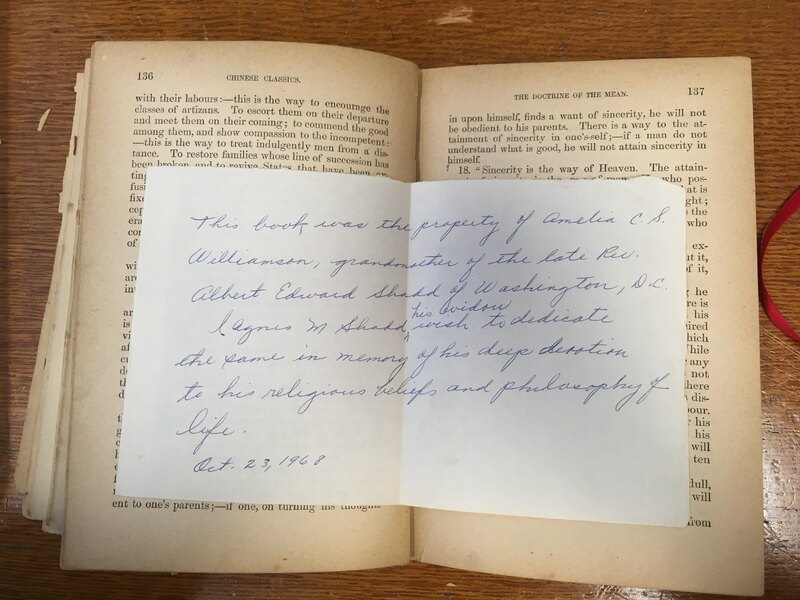 136
CHINESE CLASSICS.
with their labours:—this is the way to encourage the
classes of artizans. To escort them on their departure
and meet them on their coming; to commend the good
among them, and show compassion to the incompetent:
—this is the way to treat indulgently men from a dis-
tance. To restore families whose line of succession has
been broken, and to revive States that have been ex-
This book was the property of Amelia C. S.
Williamson, grandmother of the late Rev.
Albert Edward Shadd of Washington, D.C.
I Agnes M Shadd, his widow wish to dedicate
the same in memory of his deep devotion
to his religious beliefs and philosophy of
life.
Oct. 23, 1968
ent to one's parents;—if one, on turning his thoughts
THE DOCTRINE OF THE MEAN.
137
in upon himself, finds a want of sincerity, he will not
be obedient to his parents. There is a way to the at-
tainment of sincerity in one's-self;—if a man do not
understand what is good, he will not attain sincerity in
himself.
18. "Sincerity is the way of Heaven. The attain-
who pos-
at is
the
who
ex-
it,
of it,
he
re is
his
hich
any
not
here
dis-
his
his
will
ten
dull,
will
from